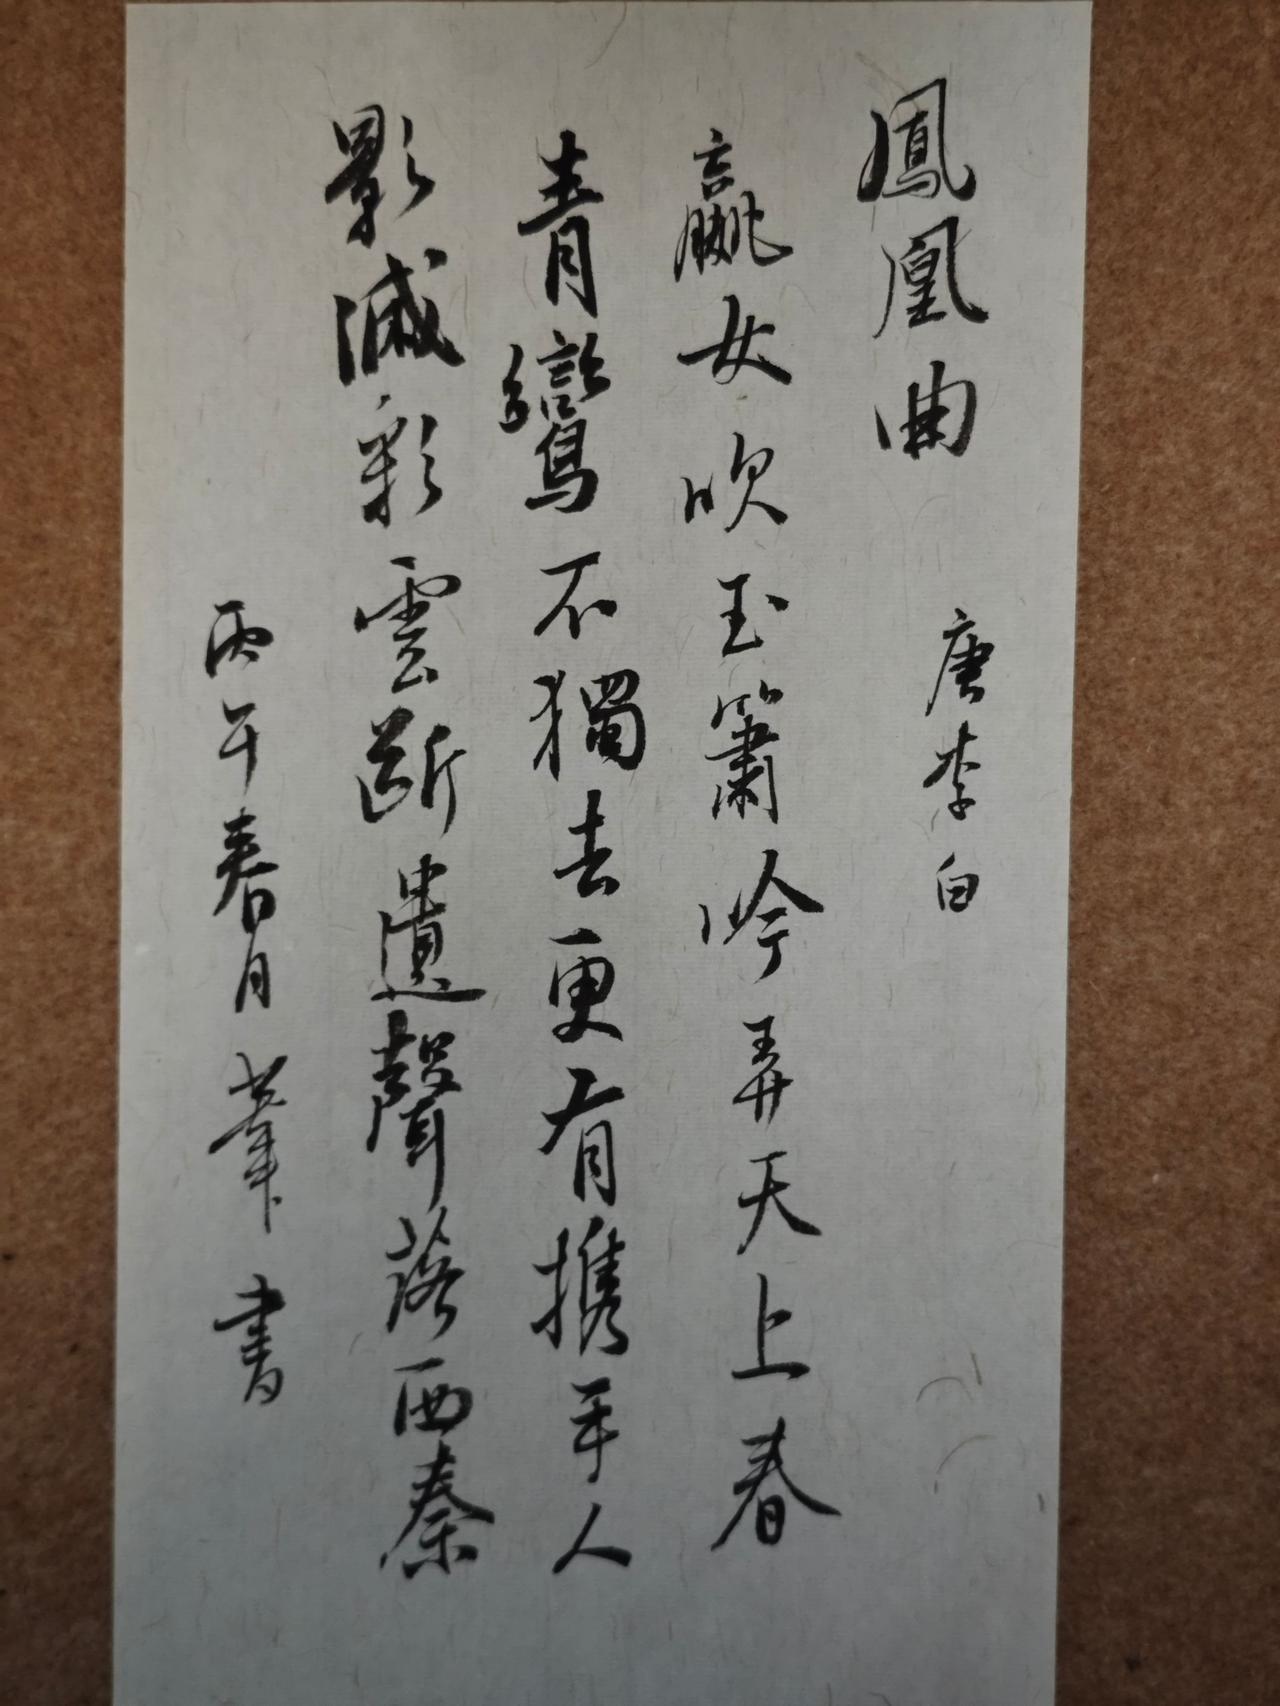 鳳凰曲 唐李白
嬴女吹玉簫吟弄天上春
青鸞不獨去更有携手人
影滅彩雲斷遺聲落西秦
丙午春月 書